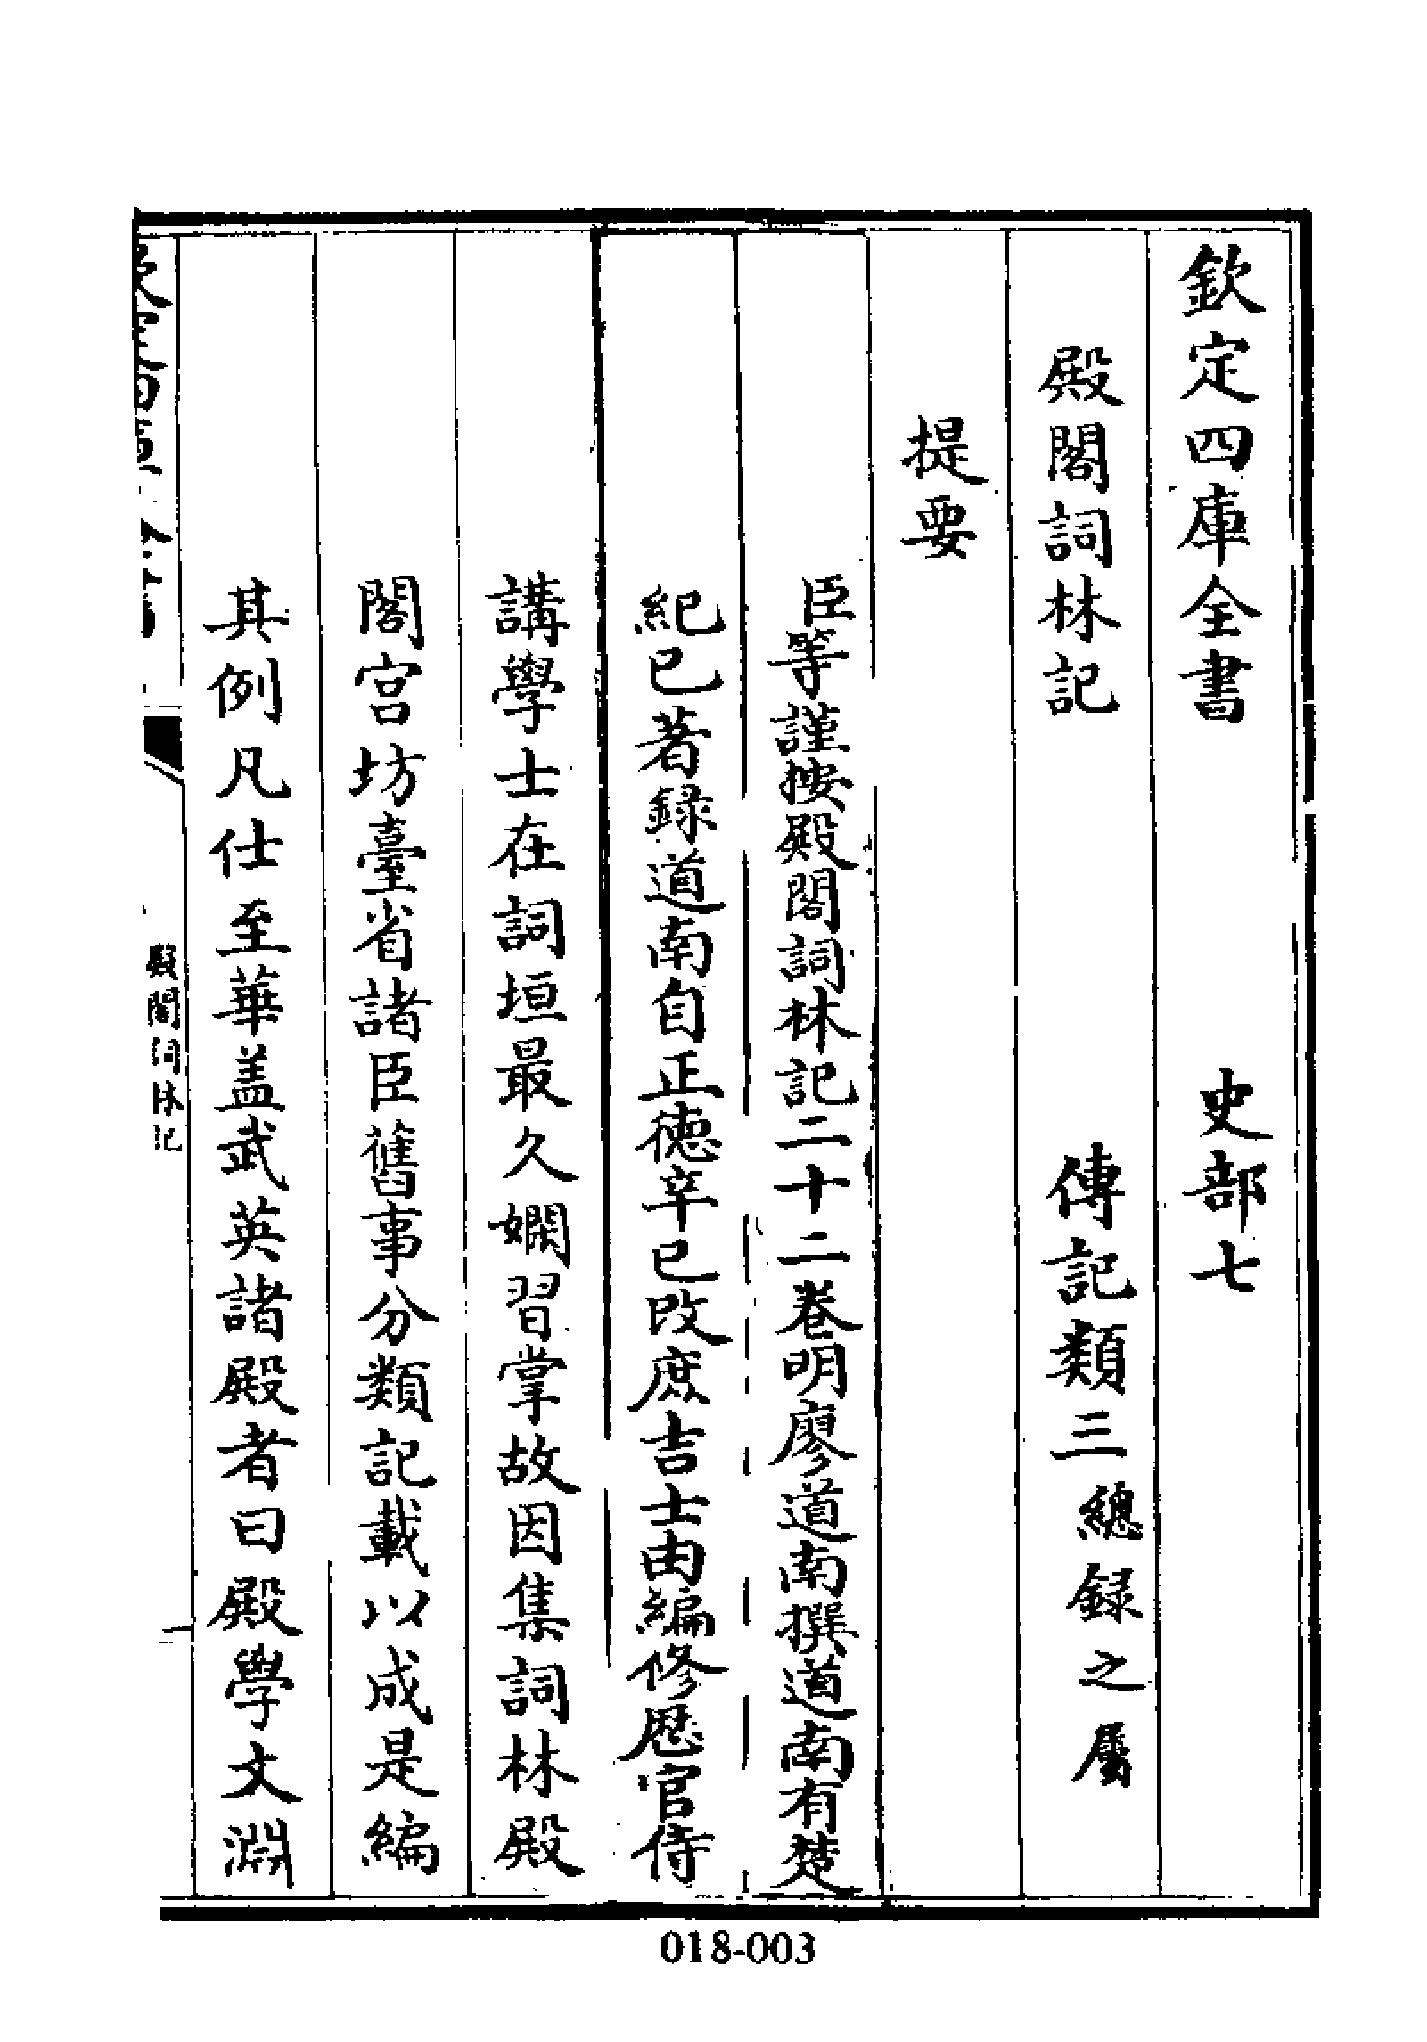 欽定四庫全書　史部七
殿閣詞林記　傳記類三總録之屬
提要
臣等謹按殿閣詞林記二十二卷明廖道南撰道南有楚
紀已著録道南自正德辛巳改庶吉士由編修歴官侍
講學士在詞垣最久嫻習掌故因集詞林殿
閣宫坊臺省諸臣舊事分類記載以成是編
其例凡仕至華盖武英諸殿者曰殿學文淵
殿閣詞林記
018-003